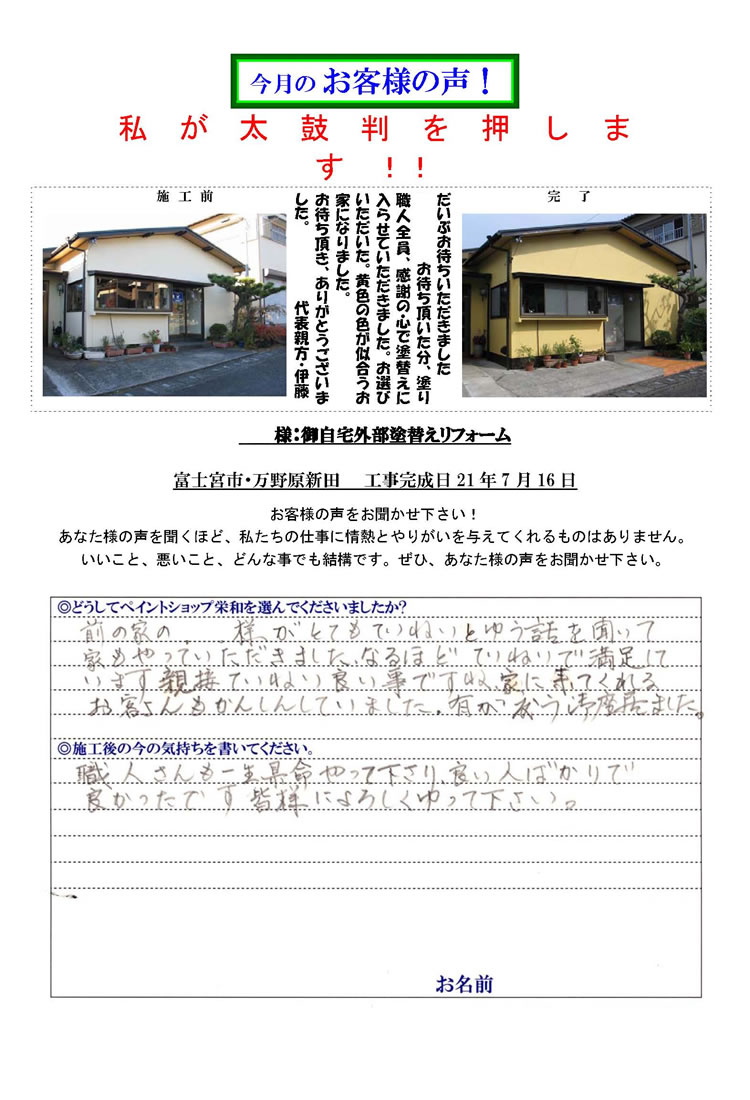 今月の お客様の声！
私が太鼓判を押しま
す！！
施工前
完了
だいぶお待ちいただきました
お待ち頂いた分、塗り
職人全員、感謝の心で塗替えに
入らせていただきました。お選び
いただいた。黄色の色が似合うお
家になりました。
お待ち頂き、ありがとうございま
した。
代表親方・伊藤
様：御自宅外部塗替えリフォーム
富士宮市・万野原新田 工事完成日 21 年 7 月 16 日
お客様の声をお聞かせ下さい！
あなた様の声を聞くほど、私たちの仕事に情熱とやりがいを与えてくれるものはありません。
いいこと、悪いこと、どんな事でも結構です。ぜひ、あなた様の声をお聞かせ下さい。
◎どうしてペイントショップ栄和を選んでくださいましたか？
前の家の 様がとてもていねいとゆう話を聞いて
家もやっていただきました、なるほどていねいで満足して
います 親接ていねい良い事ですね、家に来てくれる
お客さんもかんしんしていました。有が
◎施工後の今の気持ちを書いてください。
職人さんも一生県命やって下さり、良い人ばかりで
良かったです 皆様によろしくゆって下さい。
お名前